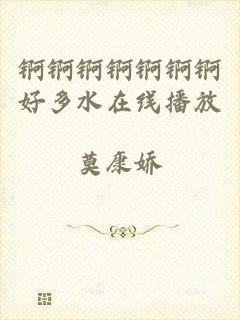 锕锕锕锕锕锕锕
好多水在线播放
莫康娇